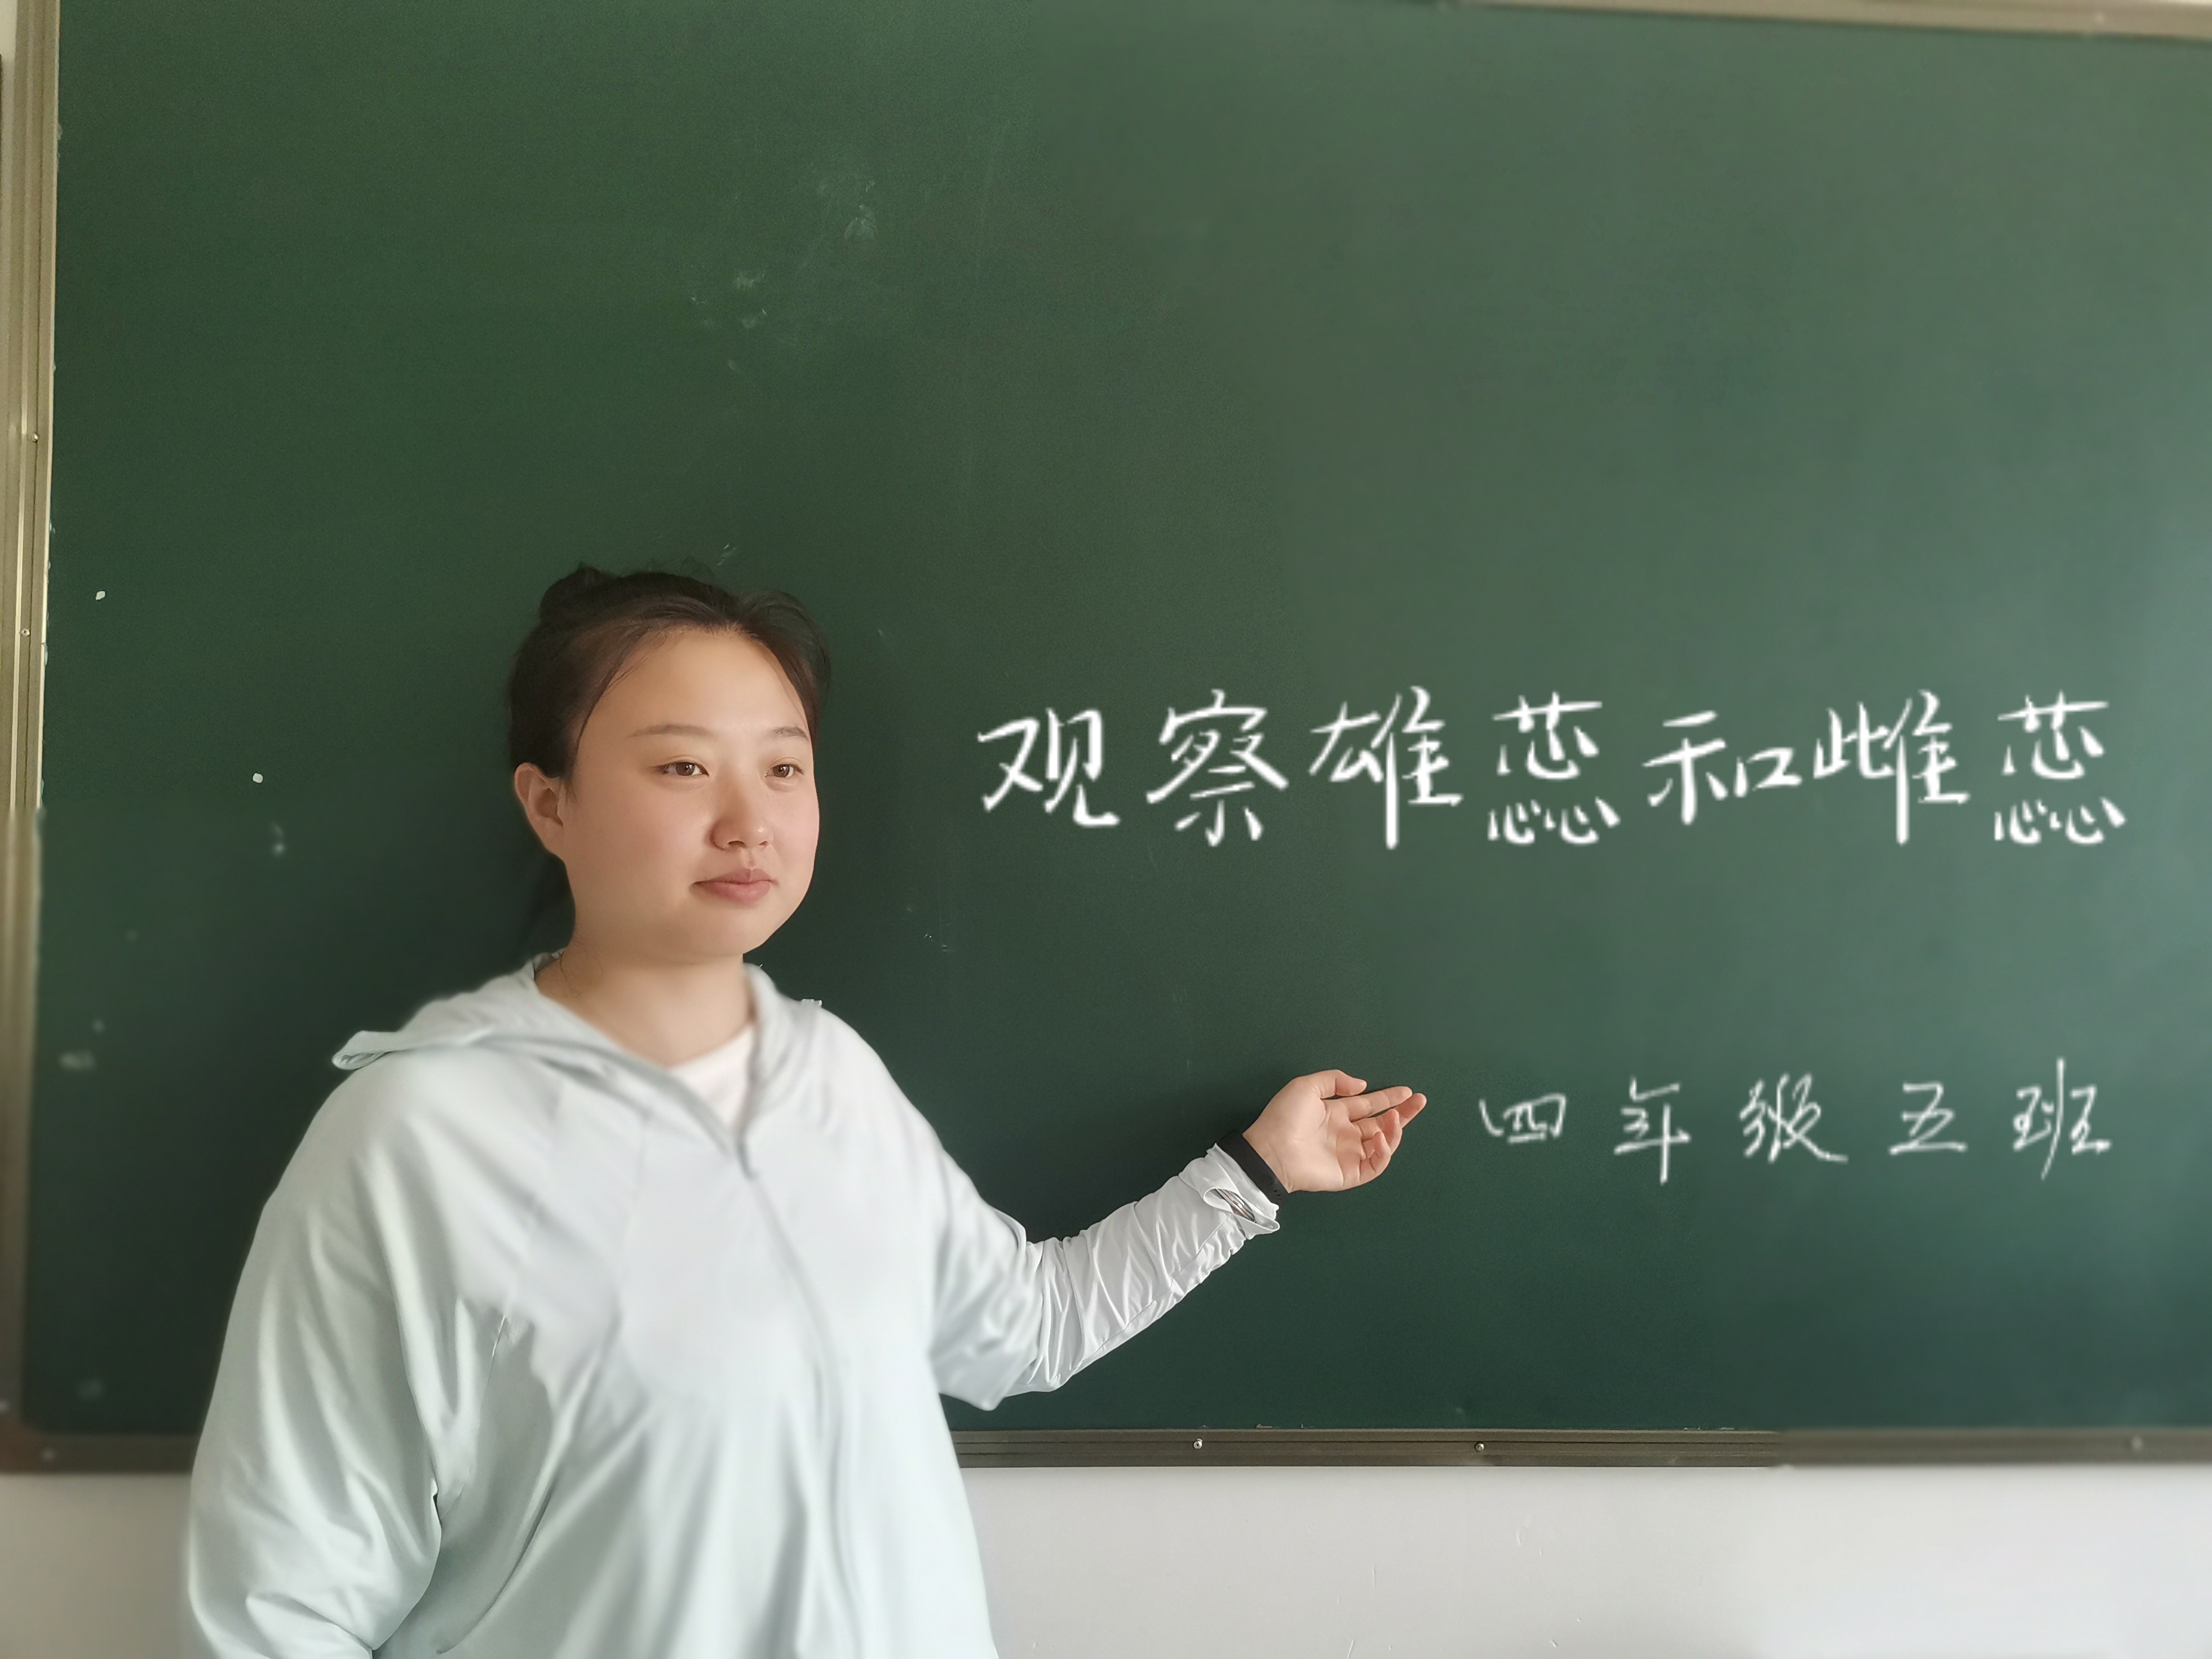 观察雄蕊和雌蕊
四年级五班